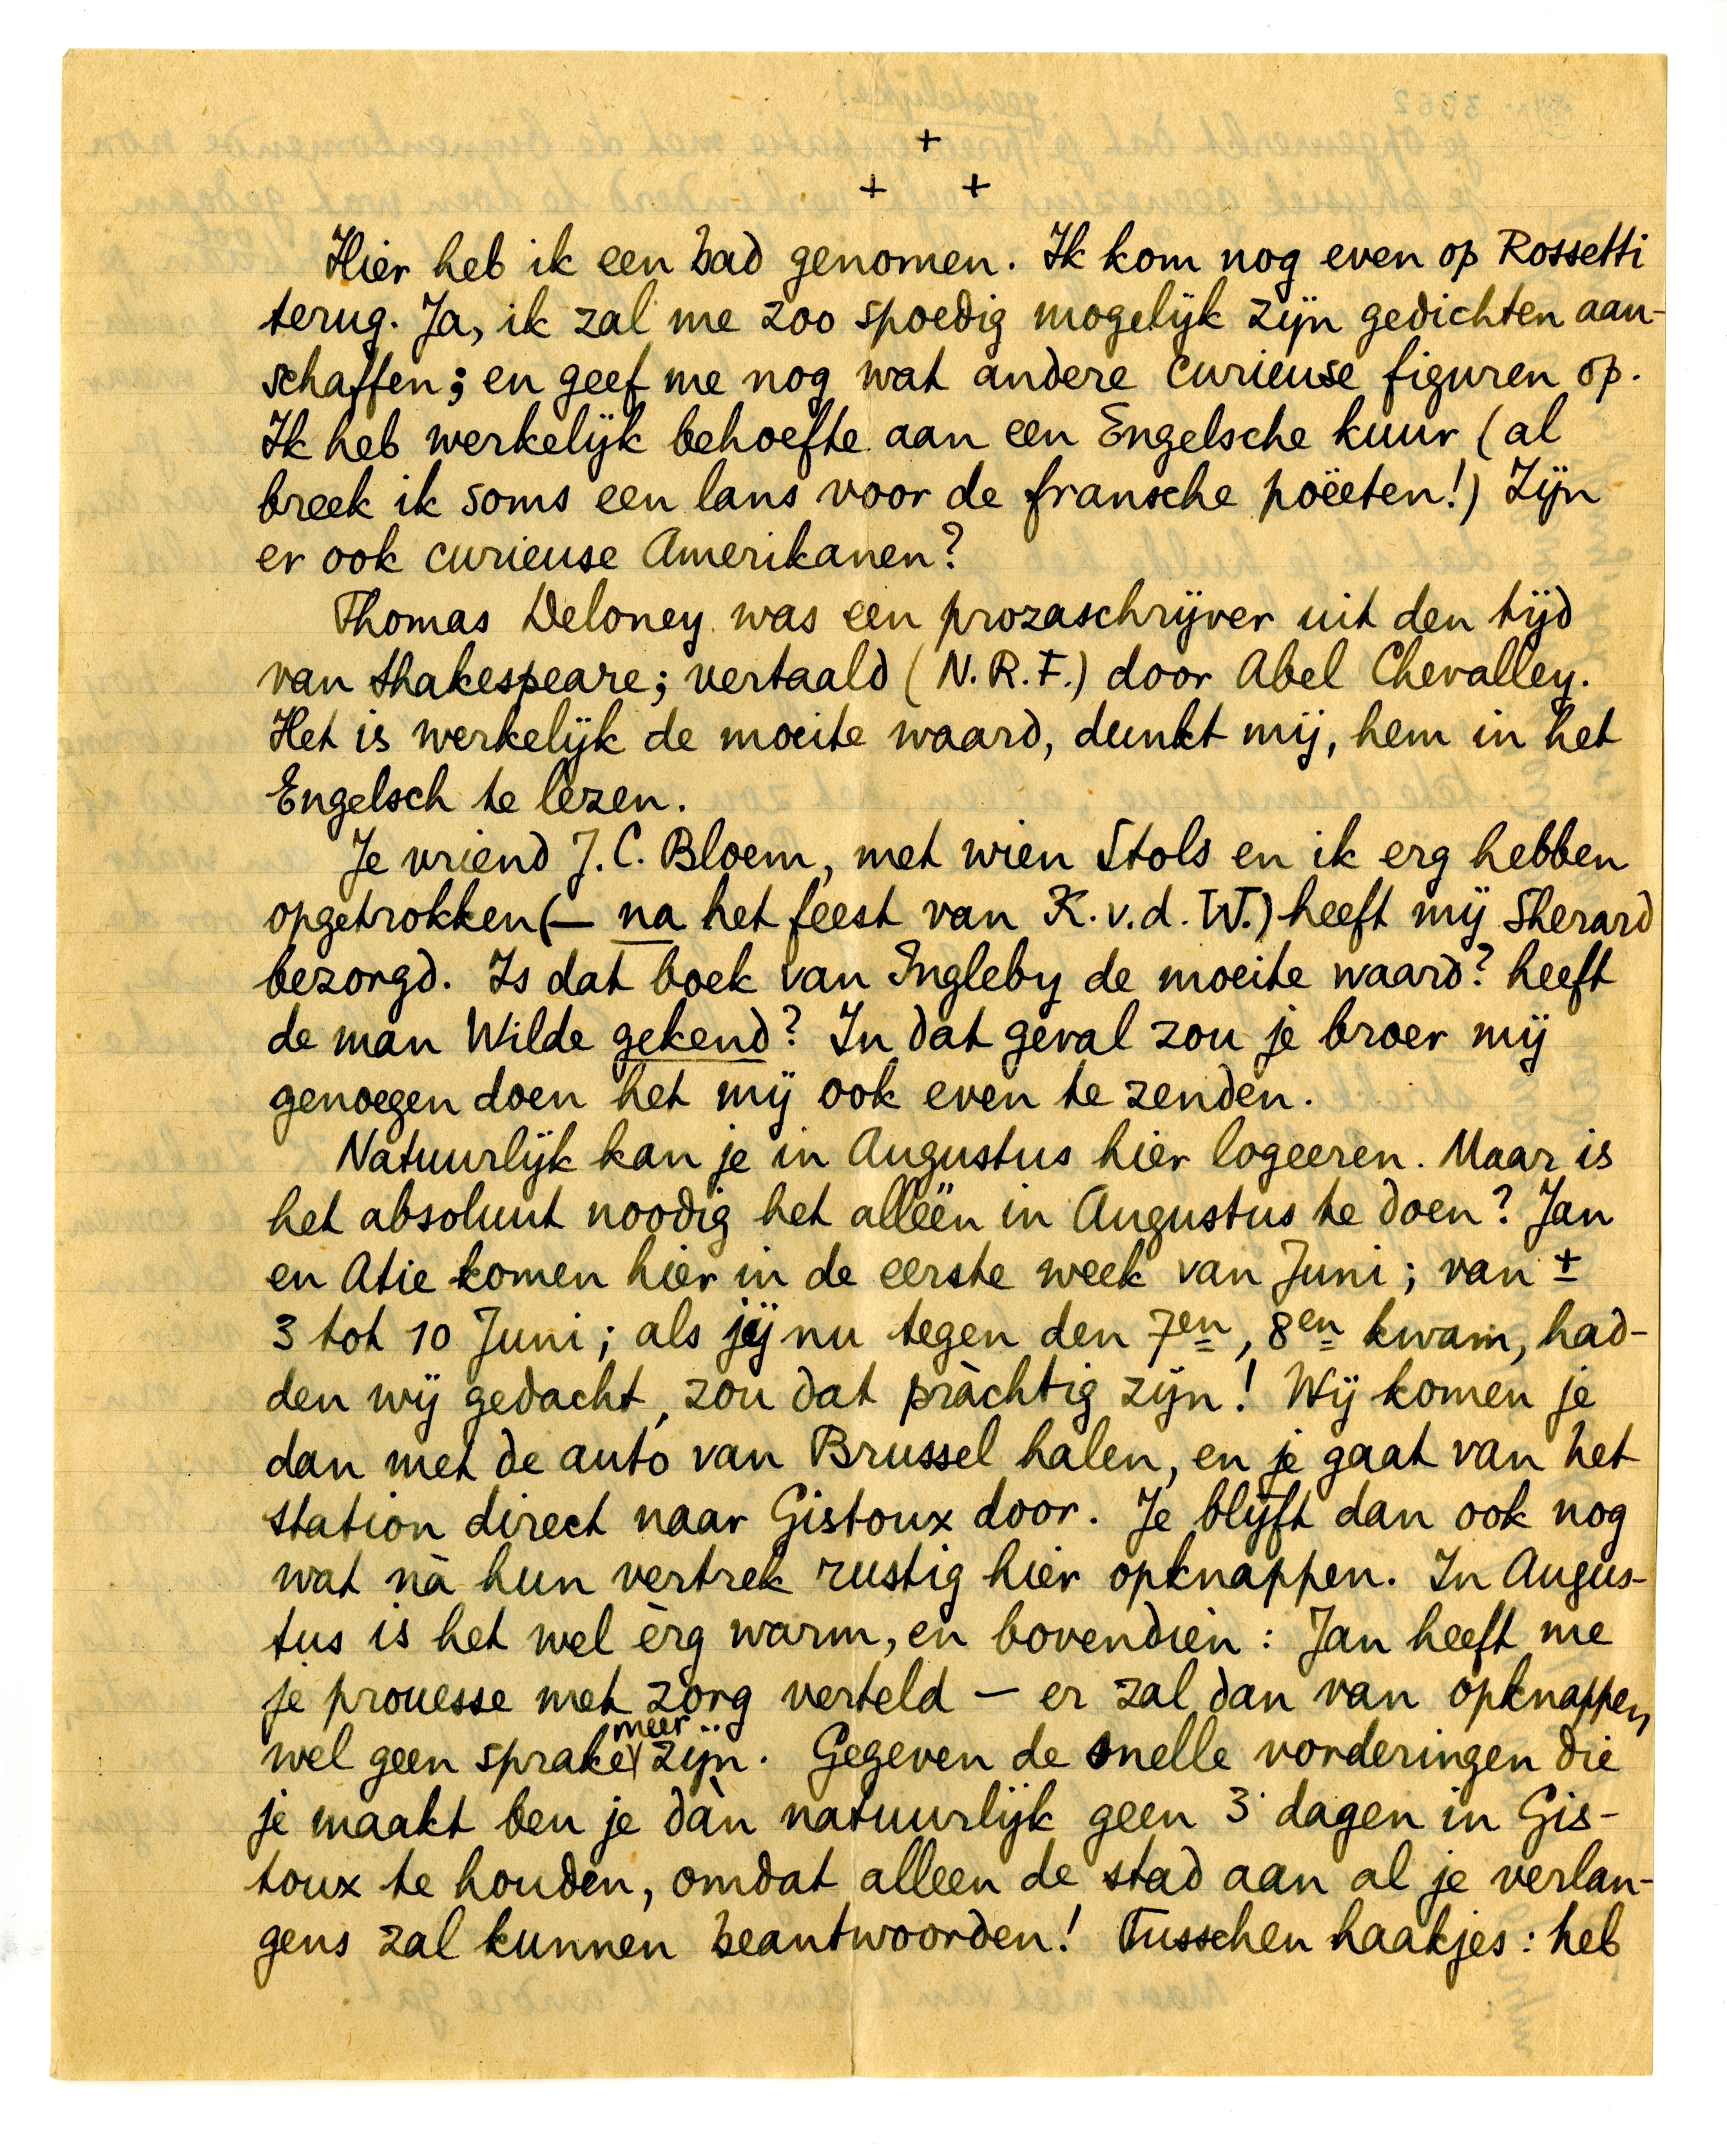 +
+ +
Hier heb ik een bad genomen. Ik kom nog even op Rossetti
terug. Ja, ik zal me zoo spoedig mogelijk zijn gedichten aan-
schaffen; en geef me nog wat andere curieuse figuren op.
Ik heb werkelijk behoefte aan een Engelsche kuur (al
breek ik soms een lans voor de fransche poëeten!) Zijn
er ook curieuse Amerikanen?
Thomas Deloney was een prozaschrijver uit den tijd
van Shakespeare; vertaald (N.R.F.) door Abel Chevalley.
Het is werkelijk de moeite waard, dunkt mij, hem in het
Engelsch te lezen.
Je vriend J.C. Bloem, met wien Stols en ik erg hebben
opgetrokken (— na het feest van K.v.d.W.) heeft mij Sherard
bezorgd. Is dat boek van Ingleby de moeite waard? heeft
de man Wilde gekend? In dat geval zou je broer mij
genoegen doen het mij ook even te zenden.
Natuurlijk kan je in Augustus hier logeeren. Maar is
het absoluut noodig het alléén in Augustus te doen? Jan
en Atie komen hier in de eerste week van Juni; van ±
3 tot 10 Juni; als jij nu tegen den 7en, 8en kwam, had-
den wij gedacht, zou dat pràchtig zijn! Wij komen je
dan met de auto van Brussel halen, en je gaat van het
station direct naar Gistoux door. Je blijft dan ook nog
wat nà hun vertrek rustig hier opknappen. In Augus-
tus is het wel èrg warm, en bovendien: Jan heeft me
je prouesse met zorg verteld — er zal dan van opknappen
wel geen sprake meer zijn. Gegeven de snelle vorderingen die
je maakt ben je dàn natuurlijk geen 3 dagen in Gis-
toux te houden, omdat alleen de stad aan al je verlan-
gens zal kunnen beantwoorden! Tusschen haakjes: heb